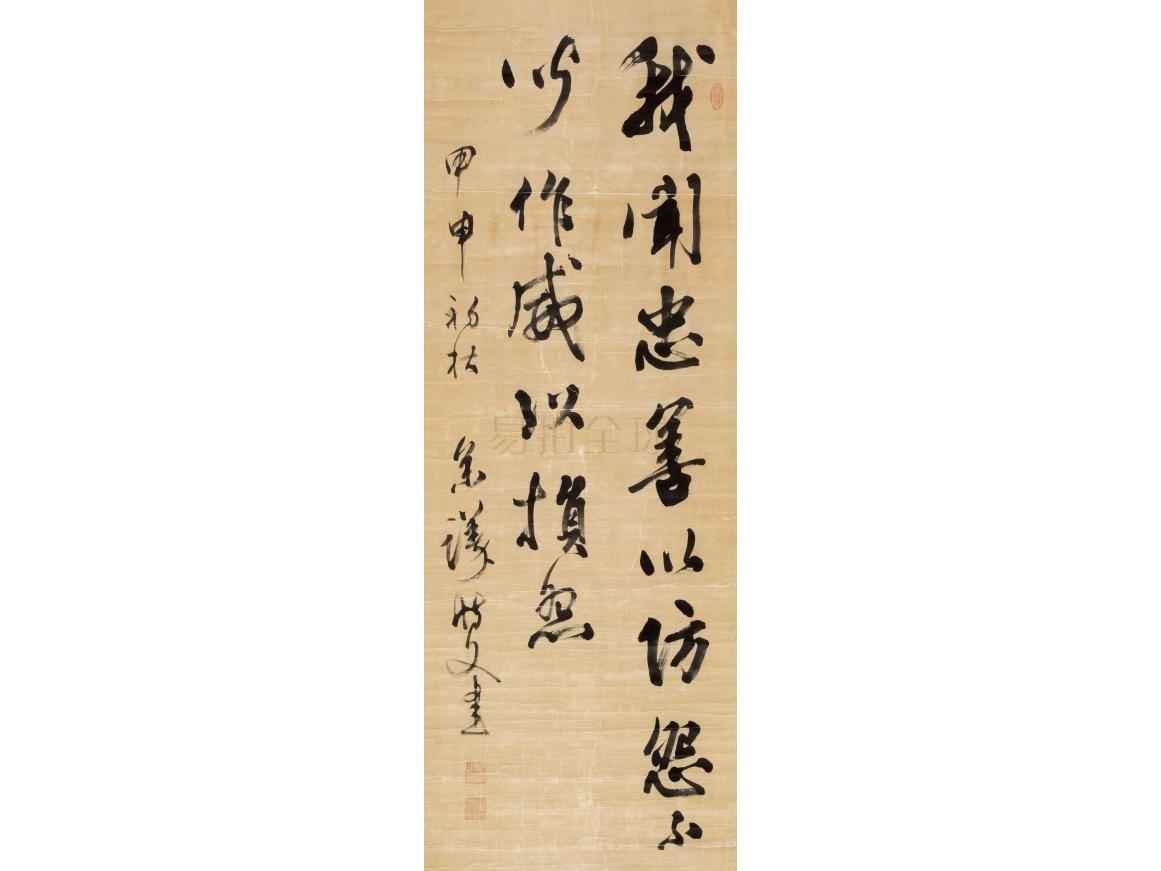 我聞忠善以防怨不
聞作威以損怨
甲申初秋 書
易拍全球